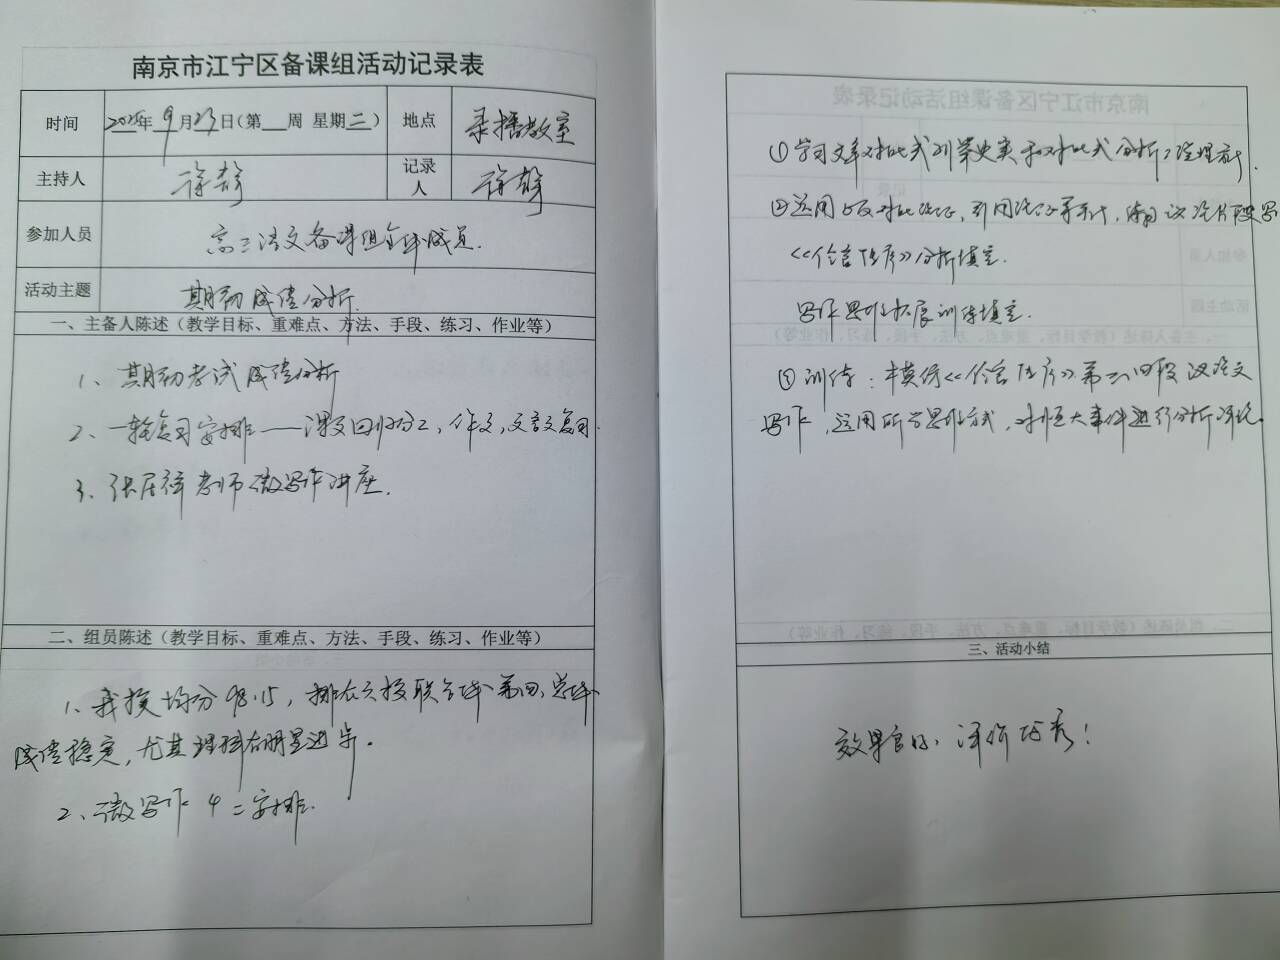 南京市江宁区备课组活动记录表
时间 2025年9月23日(第__周 星期二) 地点 录播教室
主持人 徐 记录人 徐
参加人员 高三语文备课组全体成员.
活动主题 期初成绩分析.
一、主备人陈述（教学目标、重难点、方法、手段、练习、作业等）
1、期初考试成绩分析
2、一轮复习安排——课文回归分工,作文,文言文复习.
3、张居祥老师微写作讲座.
二、组员陈述（教学目标、重难点、方法、手段、练习、作业等）
1、我校均分98.15,排在六校联合体第四,总体
成绩稳定,尤其 有明显进步.
2、微写作 安排.
①学习文章对比式列举史实和对比式分析
②运用正反对比论证,引用论证等 , 议论片段写
《伶官传序》分析填空.
写作思维拓展训练填空.
③训练: 模仿《伶官传序》第 四段议论文
写作,运用所学思维方式,对恒大事件进行分析评论.
三、活动小结
效果良好,评价优秀!